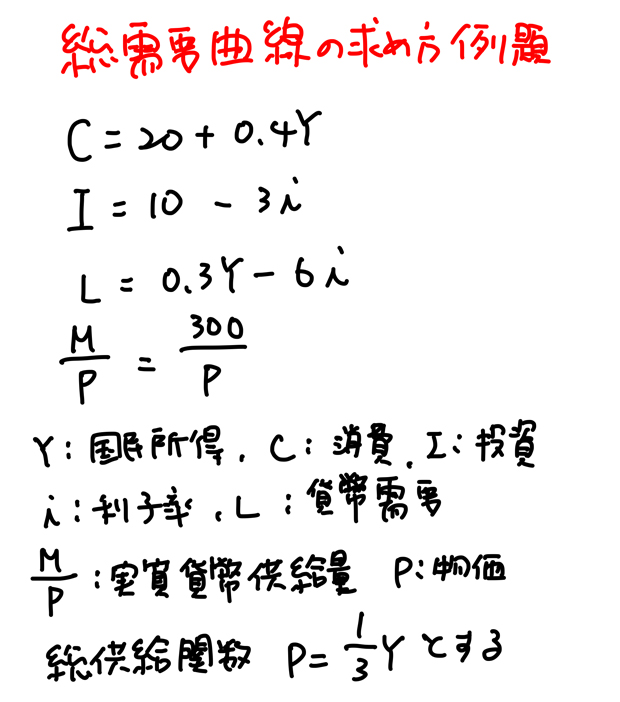 総需要曲線の求め方例題
C = 20 + 0.4Y
I = 10 - 3i
L = 0.3Y - 6i
M/P = 300/P
Y:国民所得, C:消費, I:投資
i:利子率, L:貨幣需要
M/P:実質貨幣供給量 P:物価
総供給関数 P=1/3Yとする